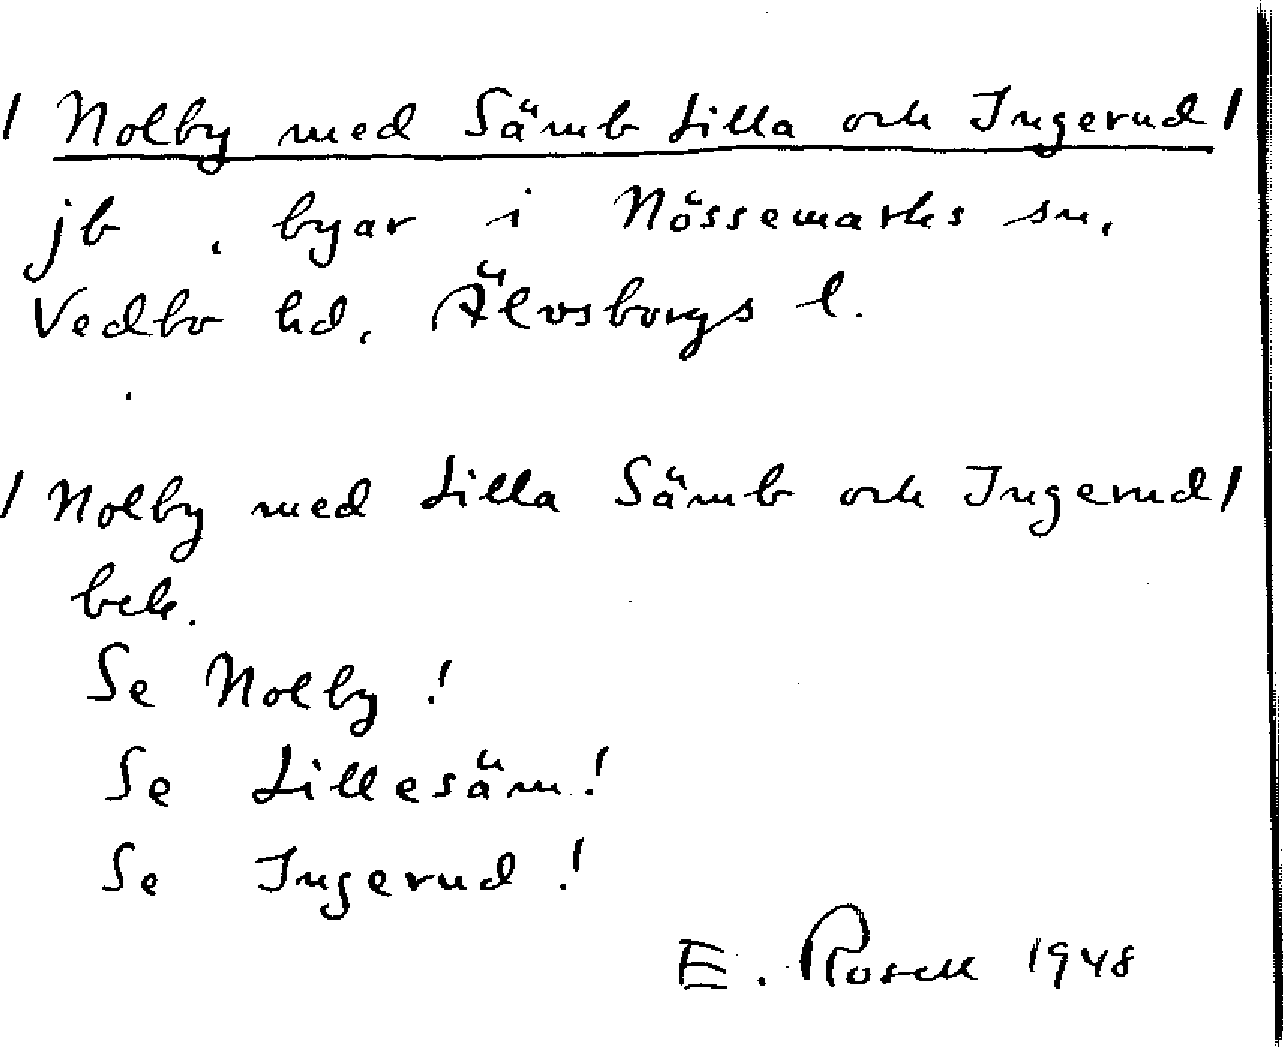 / Nolby med Sämb Lilla och Ingerud /
jb, byar i Nössemarks sn,
Vedbo hd, Älvsborgs l.
/ Nolby med Lilla Sämb och Ingerud /
bek.
Se Nolby!
Se Lillesäm!
Se Ingerud!
E. Rosell 1948